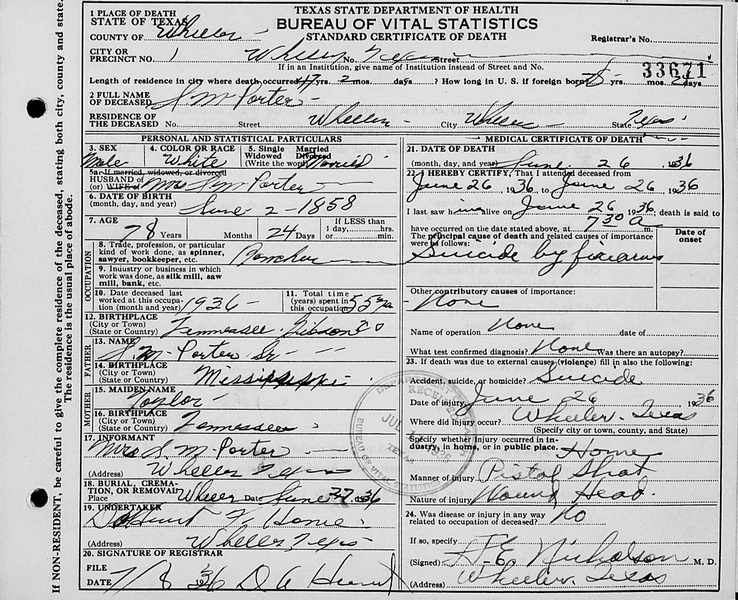 TEXAS STATE DEPARTMENT OF HEALTH
BUREAU OF VITAL STATISTICS
STANDARD CERTIFICATE OF DEATH
1 PLACE OF DEATH
STATE OF TEXAS
COUNTY OF Wheeler
Registrar's No.
CITY OR PRECINCT NO. 1 Wheeler Texas Street
If in an Institution, give name of Institution instead of Street and No.
33671
Length of residence in city where death occurred 47 yrs. 2 mos. days? How long in U. S. if foreign born? yrs. mos. days
2 FULL NAME
OF DECEASED S M Porter
RESIDENCE OF
THE DECEASED No. Street Wheeler City Wheeler State Texas
PERSONAL AND STATISTICAL PARTICULARS
3. SEX
Male
4. COLOR OR RACE
White
5. Single Married
Widowed Divorced
(Write the word) Married
5a. If married, widowed, or divorced
HUSBAND OF
(or) WIFE OF Mrs S M Porter
6. DATE OF BIRTH
(month, day, and year) June 2 - 1858
7. AGE
78 Years Months 24 Days
If LESS than
1 day, hrs.
or min.
OCCUPATION
8. Trade, profession, or particular
kind of work done, as spinner,
sawyer, bookkeeper, etc. Rancher
9. Industry or business in which
work was done, as silk mill, saw
mill, bank, etc.
10. Date deceased last
worked at this occupa-
tion (month and year) 1936
11. Total time
(years) spent in
this occupation 55 yrs
12. BIRTHPLACE
(City or Town)
(State or Country) Tennessee Gibson Co
FATHER
13. NAME
S. M. Porter Sr
14. BIRTHPLACE
(City or Town)
(State or Country) Mississippi
MOTHER
15. MAIDEN NAME
Taylor
16. BIRTHPLACE
(City or Town)
(State or Country) Tennessee
17. INFORMANT
Mrs S. M. Porter
(Address) Wheeler Texas
18. BURIAL, CREMA-
TION, OR REMOVAL
Place Wheeler Date June 27 36
19. UNDERTAKER
Hunt F. Home
(Address) Wheeler Texas
20. SIGNATURE OF REGISTRAR
FILE
DATE 7/8 36 D. A. Hunt
MEDICAL CERTIFICATE OF DEATH
21. DATE OF DEATH
(month, day, and year) June 26 1936
22. I HEREBY CERTIFY, That I attended deceased from
June 26 1936 to June 26 1936
I last saw him alive on June 26 1936, death is said to
have occurred on the date stated above, at 7 30 A m.
The principal cause of death and related causes of importance
were as follows:
Date of
onset
Suicide by firearms
Other contributory causes of importance:
None
Name of operation None date of
What test confirmed diagnosis? None Was there an autopsy?
23. If death was due to external causes (violence) fill in also the following:
Accident, suicide, or homicide? Suicide
Date of injury June 26 1936
Where did injury occur? Wheeler Texas
(Specify city or town, county, and State)
Specify whether injury occurred in in-
dustry, in home, or in public place. Home
Manner of injury Pistol Shot
Nature of injury Wound Head.
24. Was disease or injury in any way
related to occupation of deceased? No
If so, specify
(Signed) H. E. Nicholson M. D.
(Address) Wheeler Texas
If NON-RESIDENT, be careful to give the complete residence of the deceased, stating both city, county and state.
The residence is the usual place of abode.
RECEIVED
TEXAS